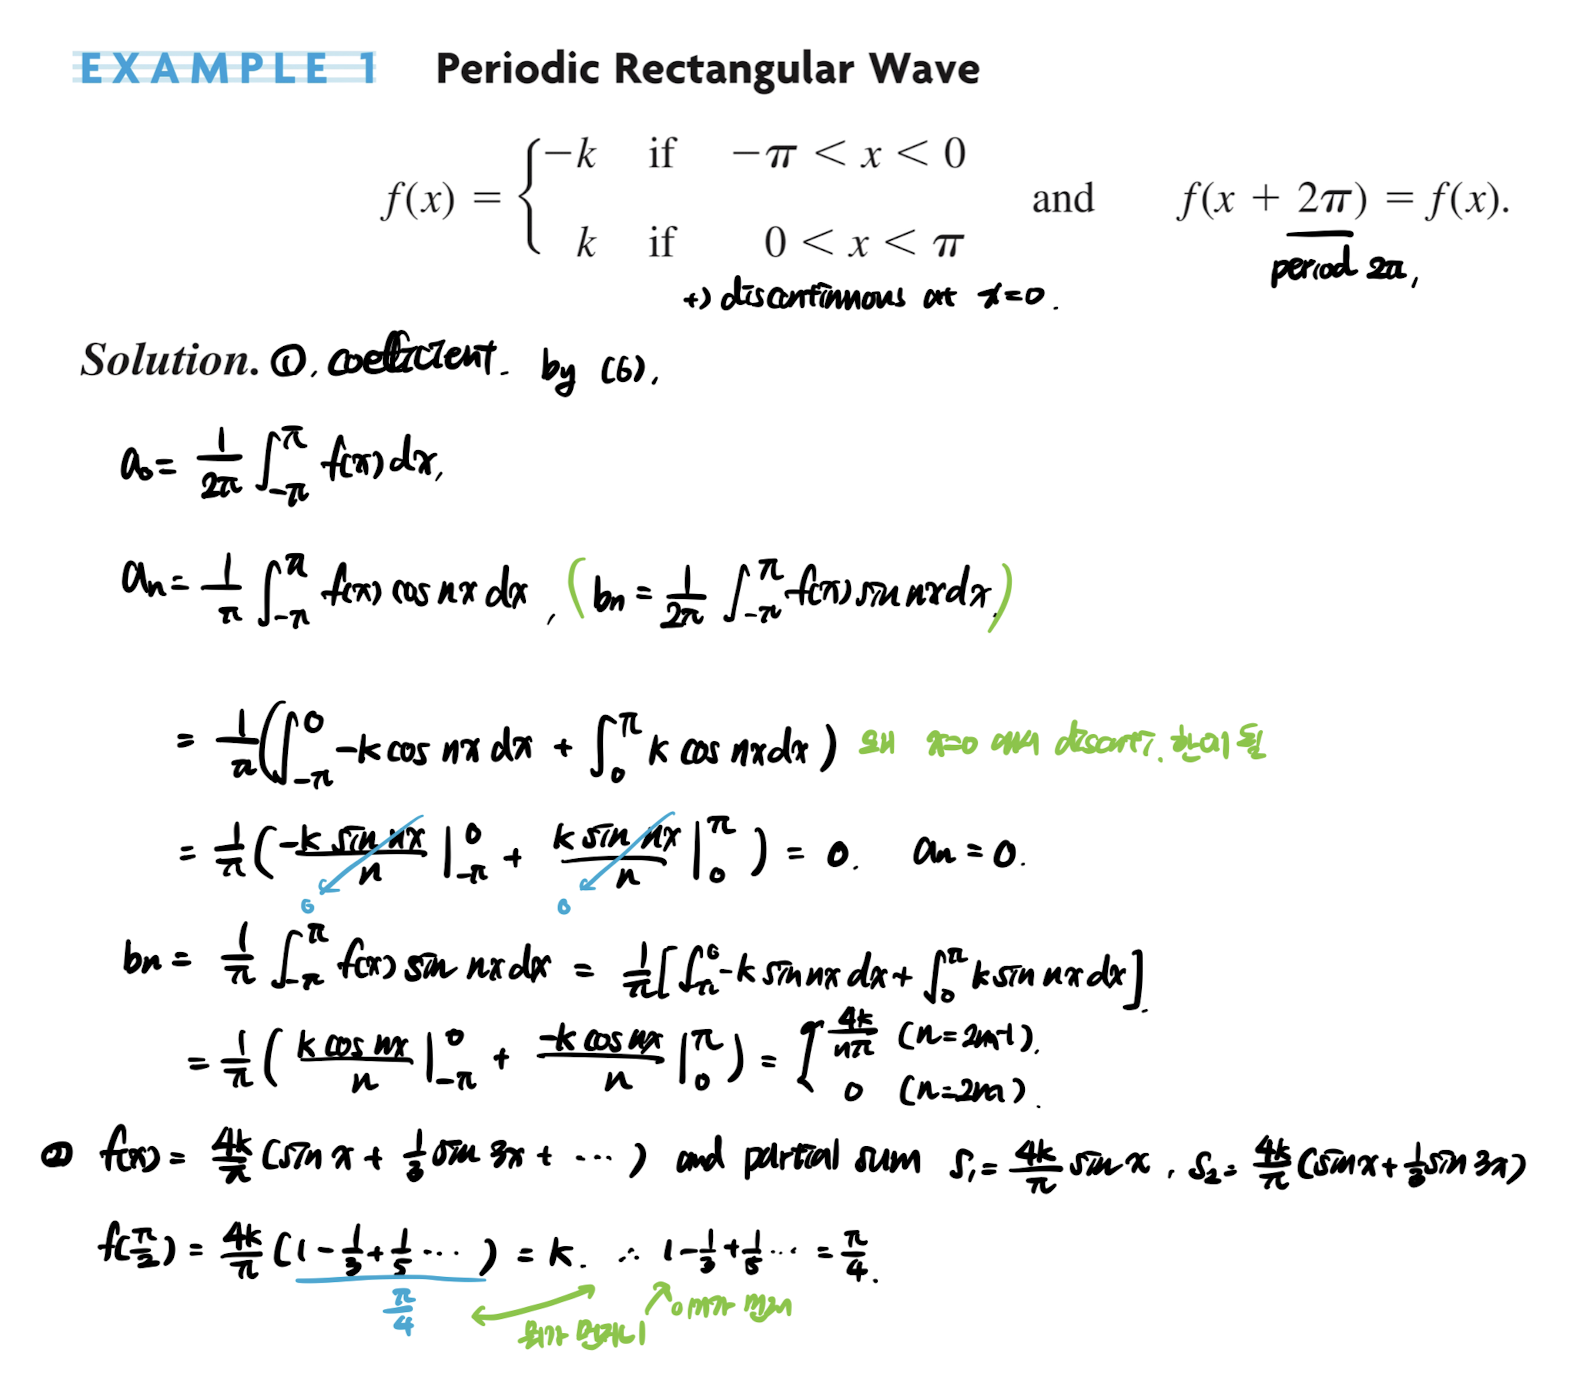 EXAMPLE 1 Periodic Rectangular Wave
f(x) = { −k if −π < x < 0
k if 0 < x < π and f(x + 2π) = f(x).
period 2π,
+) discontinuous at x=0.
Solution. ①. coefficient. by (6),
a₀ = 1/2π ∫_{-π}^{π} f(x) dx,
aₙ = 1/π ∫_{-π}^{π} f(x) cos nx dx, (bₙ = 1/2π ∫_{-π}^{π} f(x) sin nx dx,)
= 1/π (∫_{-π}^{0} -k cos nx dx + ∫_{0}^{π} k cos nx dx) 왜 x=0 에서 discont.
= 1/π (-k sin nx / n |_{-π}^{0} + k sin nx / n |_{0}^{π}) = 0. aₙ = 0.
0 0
bₙ = 1/π ∫_{-π}^{π} f(x) sin nx dx = 1/π [∫_{-π}^{0} -k sin nx dx + ∫_{0}^{π} k sin nx dx].
= 1/π (k cos nx / n |_{-π}^{0} + -k cos nx / n |_{0}^{π}) = [ 4k/nπ (n=2m-1).
0 (n=2m).
② f(x) = 4k/π (sin x + 1/3 sin 3x + ⋯) and partial sum S₁ = 4k/π sin x, S₂ = 4k/π (sin x + 1/3 sin 3x)
f(π/2) = 4k/π (1 - 1/3 + 1/5 ⋯) = k. ∴ 1 - 1/3 + 1/5 ⋯ = π/4.
π/4
뭐가 먼저니 이게 먼저